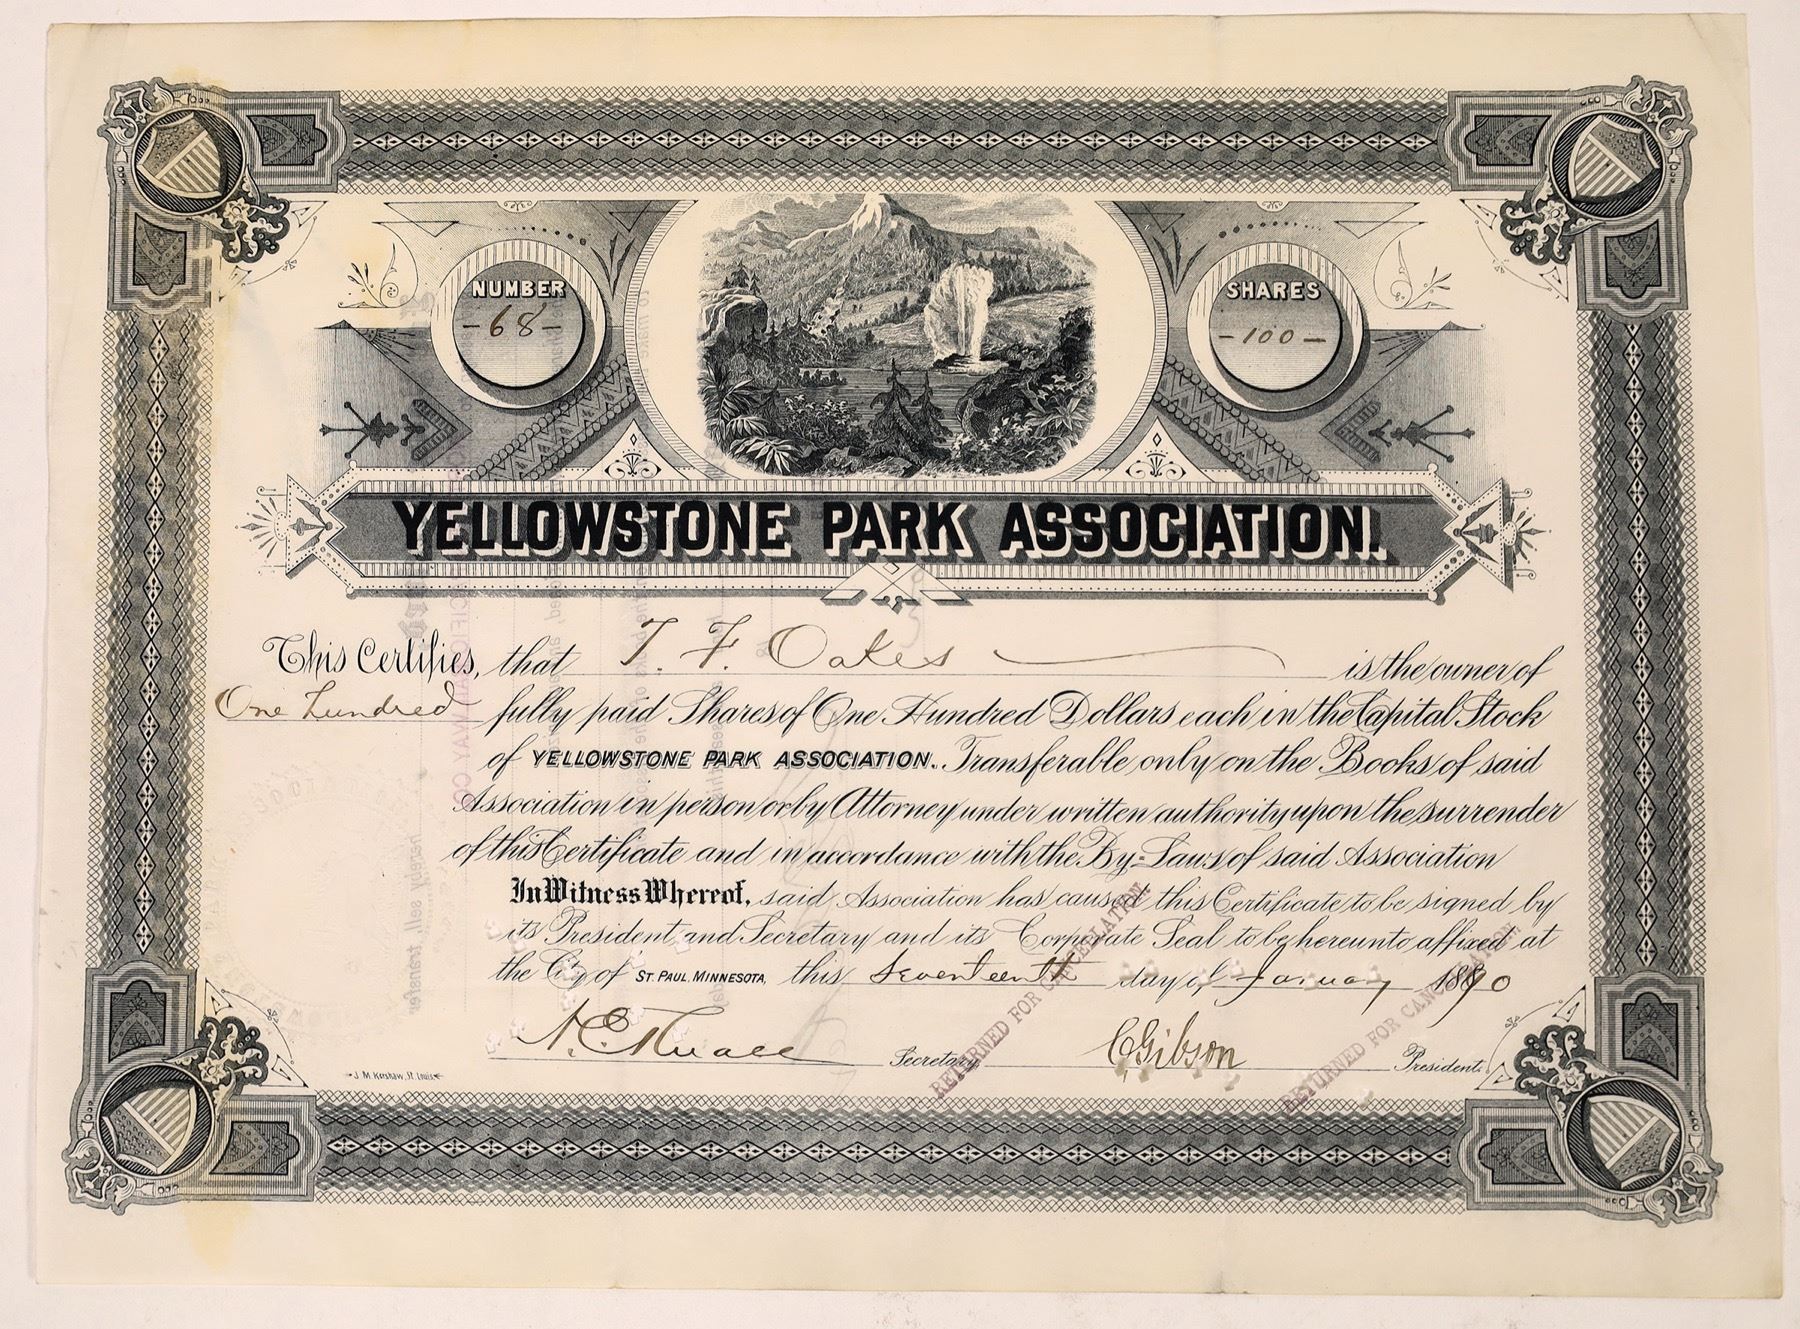 NUMBER
-68-
SHARES
-100-
YELLOWSTONE PARK ASSOCIATION.
This Certifies, that T. F. Oakes is the owner of
One hundred fully paid Shares of One Hundred Dollars each in the Capital Stock
of YELLOWSTONE PARK ASSOCIATION. Transferable only on the Books of said
Association in person or by Attorney under written authority upon the surrender
of this Certificate and in accordance with the By-Laws of said Association
In Witness Whereof, said Association has caused this Certificate to be signed by
its President and Secretary and its Corporate Seal to be hereunto affixed at
the City of ST. PAUL, MINNESOTA, this Seventeenth day of January 1890
Secretary. C Gibson President.
J. M. Kershaw, St. Louis.
RETURNED FOR CANCELLATION
RETURNED FOR CANCELLATION